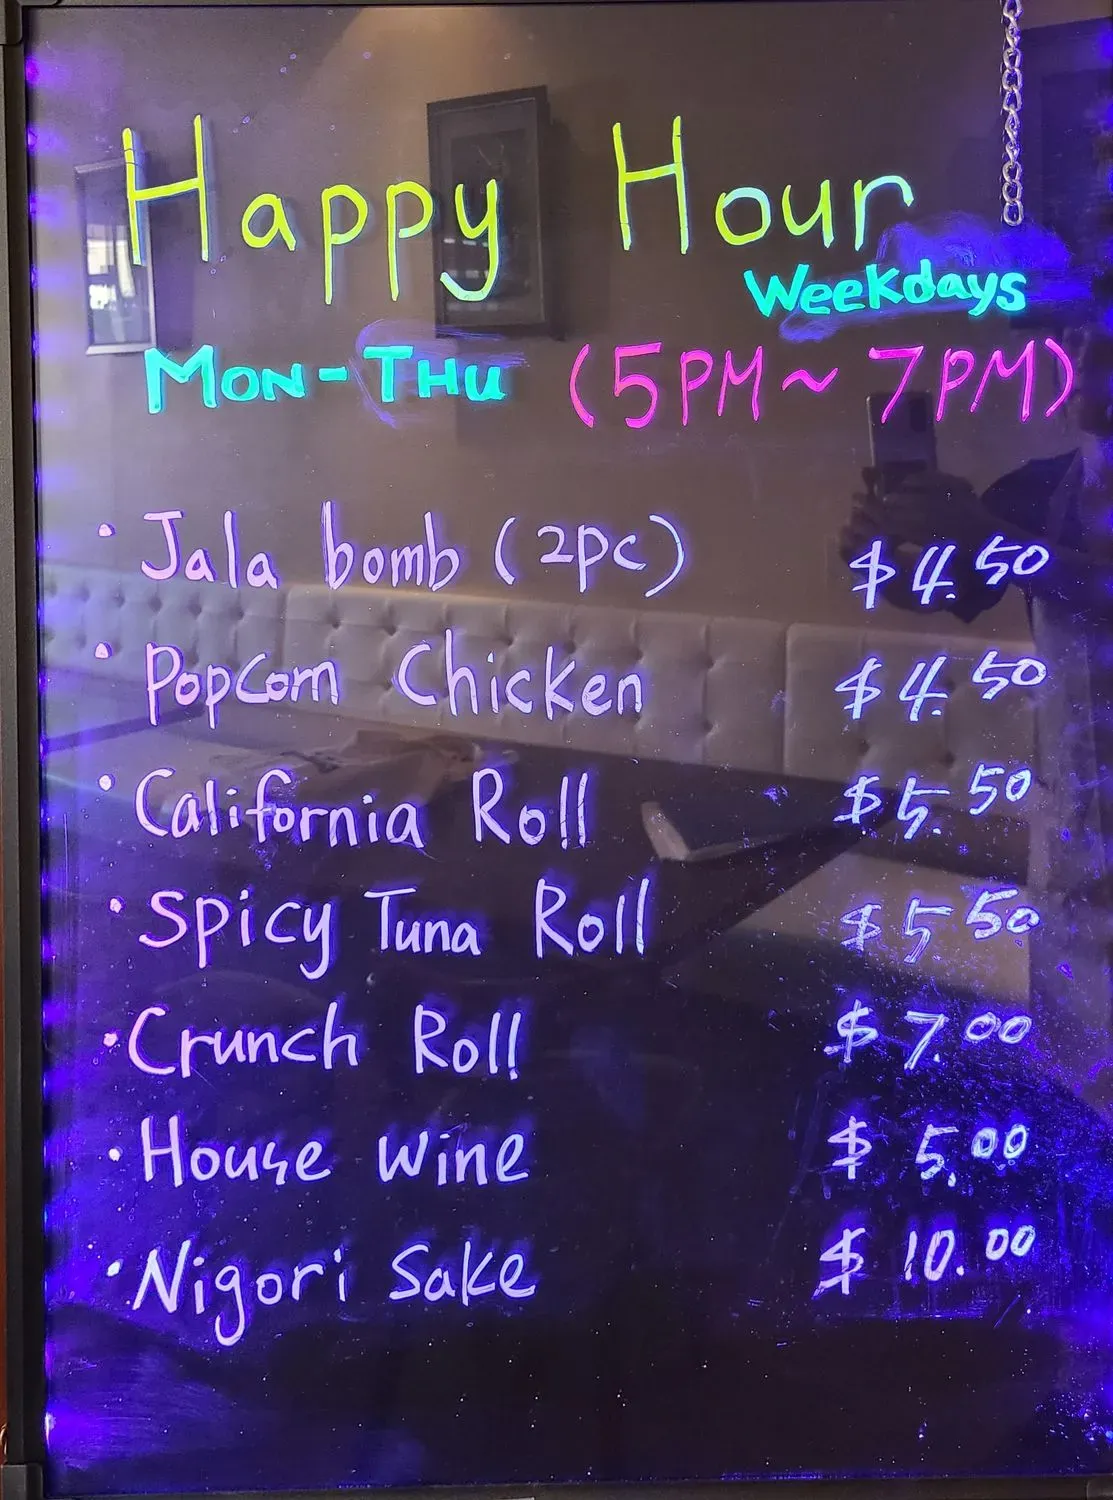 Happy Hour
Weekdays
MON-THU (5PM ~ 7PM)
• Jala bomb (2pc) $4.50
• PopCorn Chicken $4.50
• California Roll $5.50
• Spicy Tuna Roll $5.50
• Crunch Roll $7.00
• House wine $5.00
• Nigori Sake $10.00